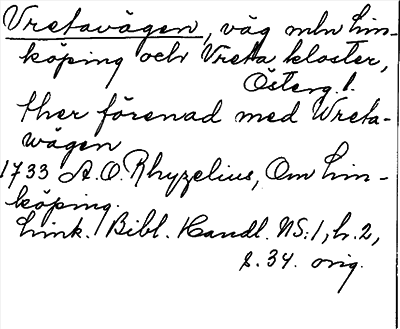 Vretavägen, väg mln Lin-
köping och Vreta kloster,
Österg. l.
ther förenad med Wreta-
wägen
1733 A.O. Rhyzelius, Om Lin-
köping.
Link. Bibl. Handl. NS:1, h. 2,
s. 34. orig.